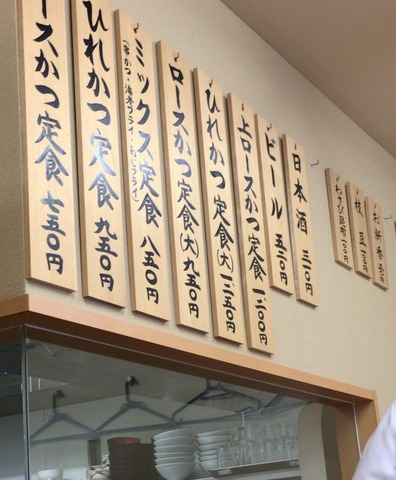 ロースかつ定食 七五〇円
ひれかつ定食 九五〇円
ミックス定食 八五〇円
(串かつ・海老フライ・あじフライ)
ロースかつ定食(大) 九五〇円
ひれかつ定食(大) 一二五〇円
上ロースかつ定食 一二〇〇円
ビール 五三〇円
日本酒 三一〇円
わさび昆布 一〇〇円
枝豆 一〇〇円
お新香